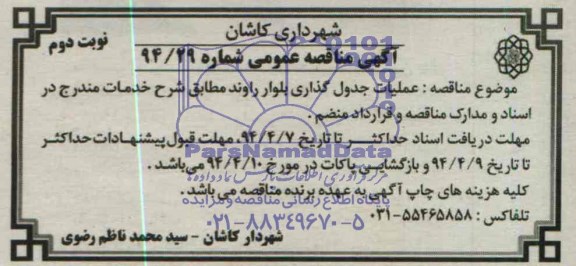 شهرداری کاشان
نوبت دوم
آگهی مناقصه عمومی شماره ۹۴/۲۹
موضوع مناقصه : عملیات جدول گذاری بلوار راوند مطابق شرح خدمات مندرج در
اسناد و مدارک مناقصه و قرارداد منضم .
مهلت دریافت اسناد حداکثر تا تاریخ ۹۴/۴/۷، مهلت قبول پیشنهادات حداکثر
تا تاریخ ۹۴/۴/۹ و بازگشایی پاکات در مورخ ۹۴/۴/۱۰ می‌باشد .
ParsNamadData
کلیه هزینه های چاپ آگهی به عهده برنده مناقصه می باشد .
پایگاه اطلاع رسانی مناقصه و مزایده
تلفاکس : ۵۵۴۶۵۸۵۸-۰۳۱
۰۲۱-۸۸۳۴۹۶۷۰-۵
شهردار کاشان - سید محمد ناظم رضوی